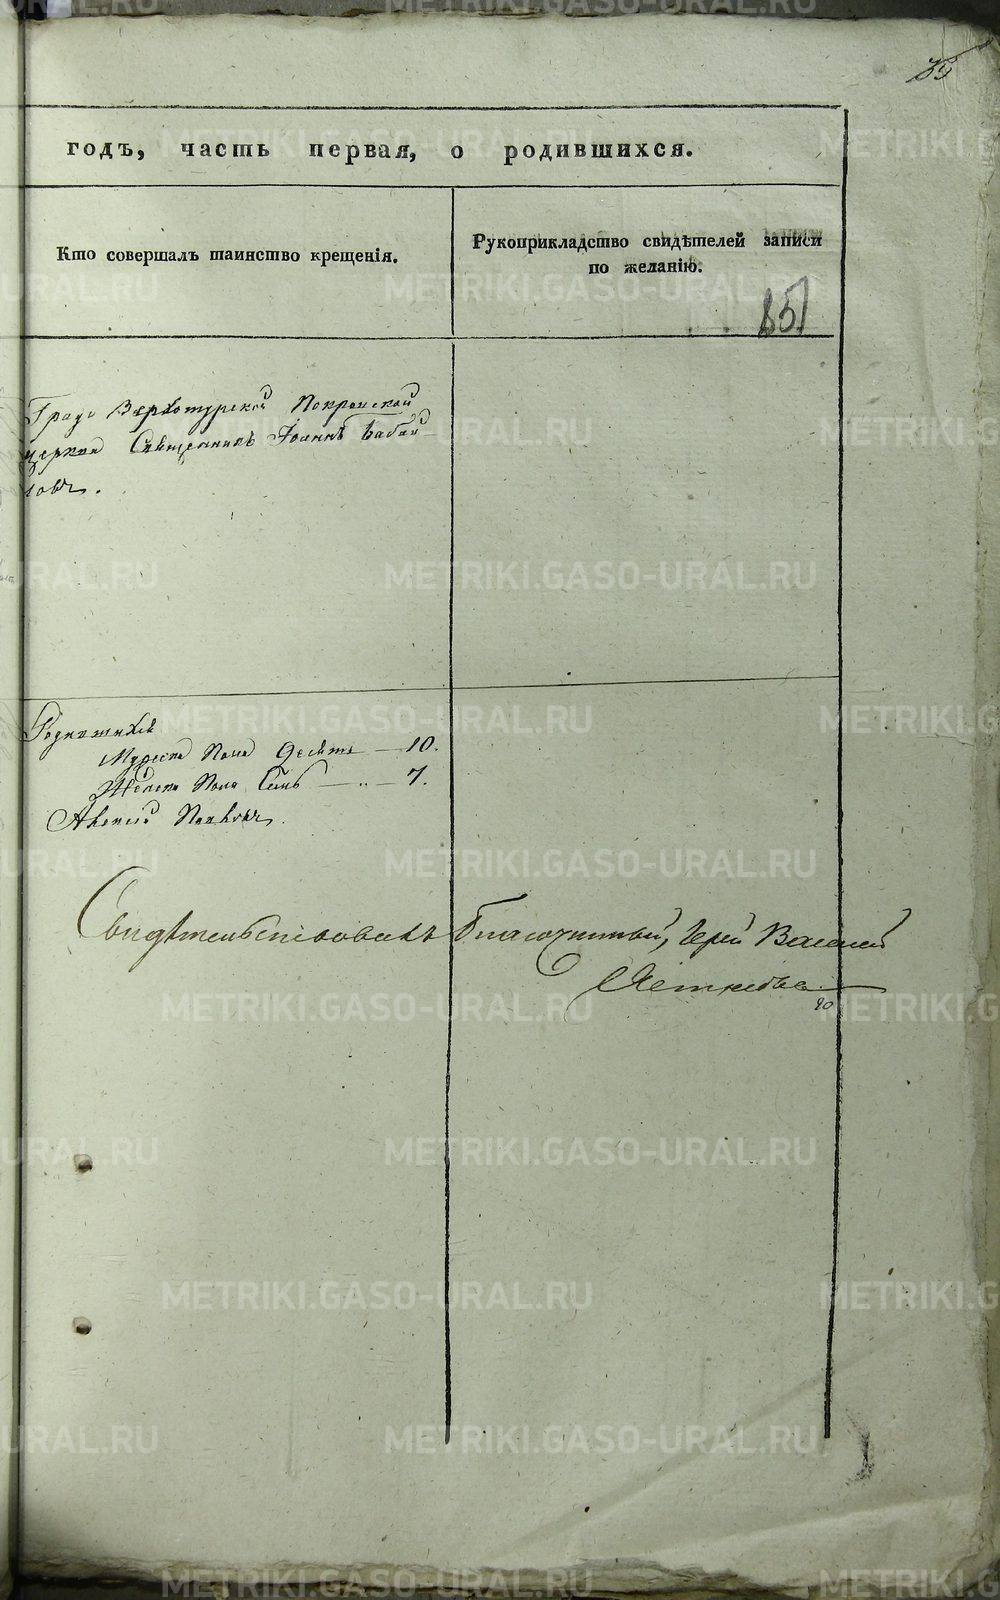 годъ, часть первая, о родившихся.
Кто совершалъ таинство крещенія.
Рукоприкладство свидѣтелей записи
по желанію.
851
Града Верхотурской Покровской
церкви Священникъ Іоаннъ Бабай-
ловъ.
Мужеска Пола Десять — 10.
Женска Пола Семь — „ — 7.
Свидѣтельствовалъ Благочинный, Іерей Василій
METRIKI.GASO-URAL.RU